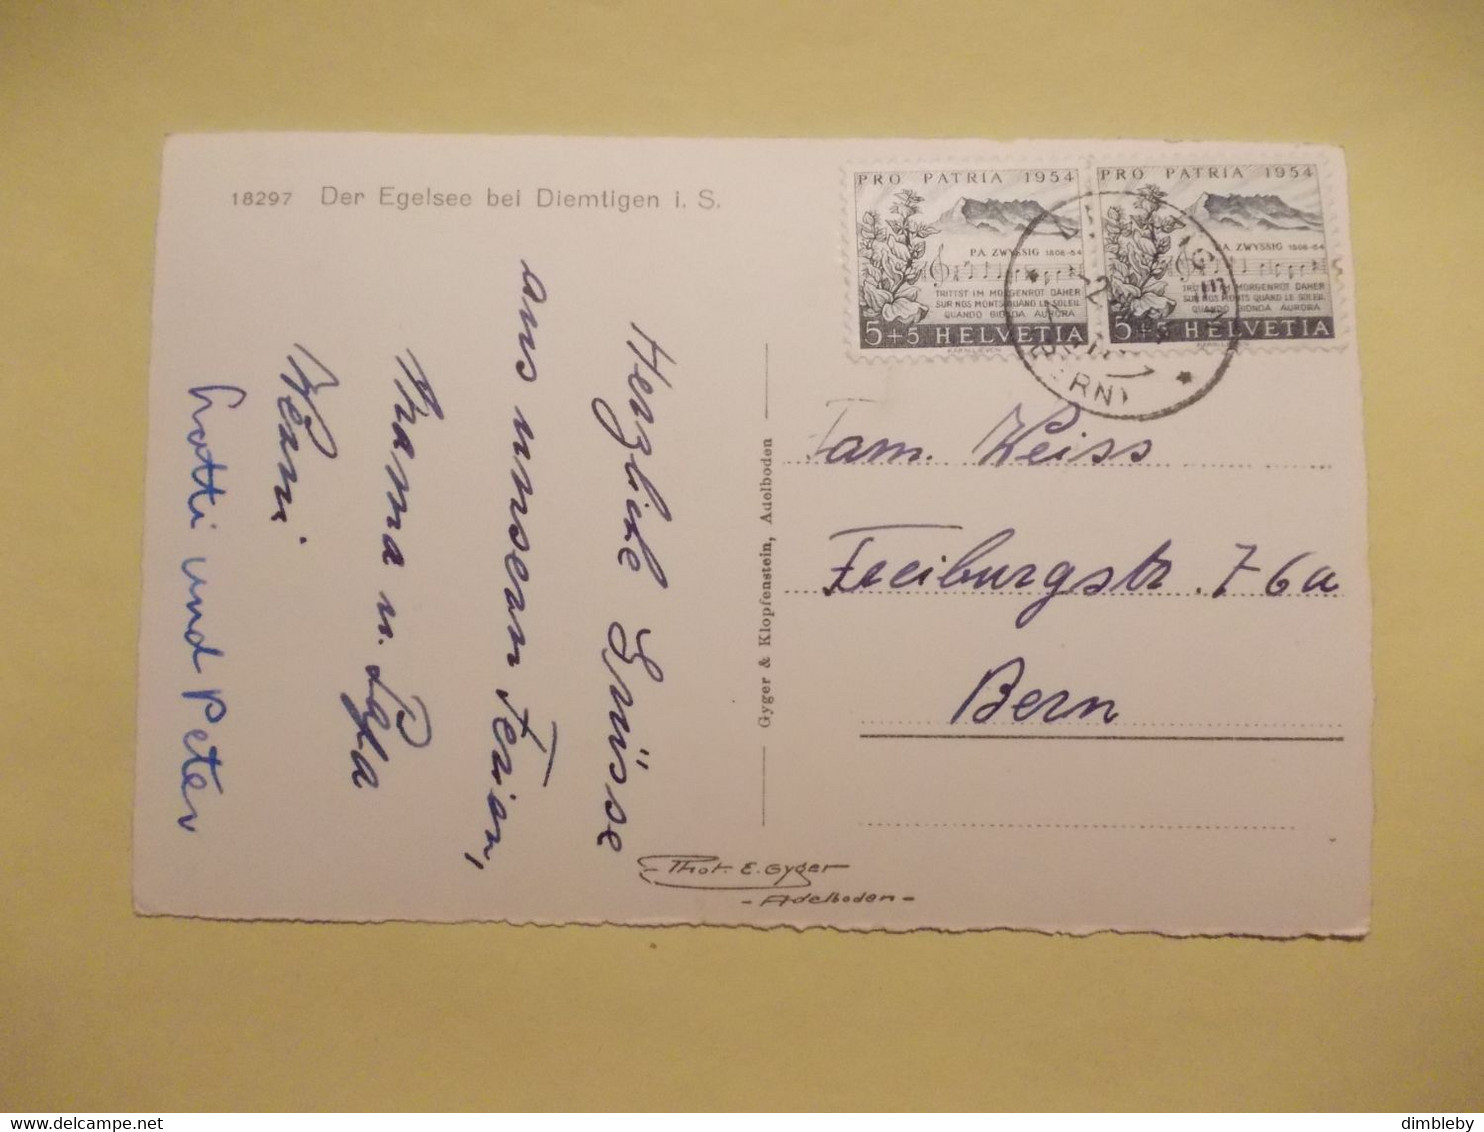 18297 Der Egelsee bei Diemtigen i. S.
PRO PATRIA 1954
P.A. ZWYSSIG 1808-54
TRITTST IM MORGENROT DAHER
SUR NOS MONTS QUAND LE SOLEIL
QUANDO BIONDA AURORA
5+5 HELVETIA
PRO PATRIA 1954
P.A. ZWYSSIG 1808-54
TRITTST IM MORGENROT DAHER
SUR NOS MONTS QUAND LE SOLEIL
QUANDO BIONDA AURORA
5+5 HELVETIA
(BERN)
Herzliche Grüsse
aus unseren Ferien,
Mama u.
Lotti und Peter
Gyger & Klopfenstein, Adelboden
Fam. Weiss
Freiburgstr. 76a
Bern
- Phot. E. Gyger
- Adelboden -
dimbleby